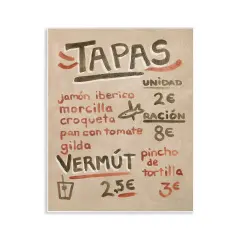 TAPAS
UNIDAD
2€
RACIÓN
8€
jamón iberico
morcilla
croqueta
pan con tomate
gilda
VERMÚT
2,5€
pincho
de
tortilla
3€